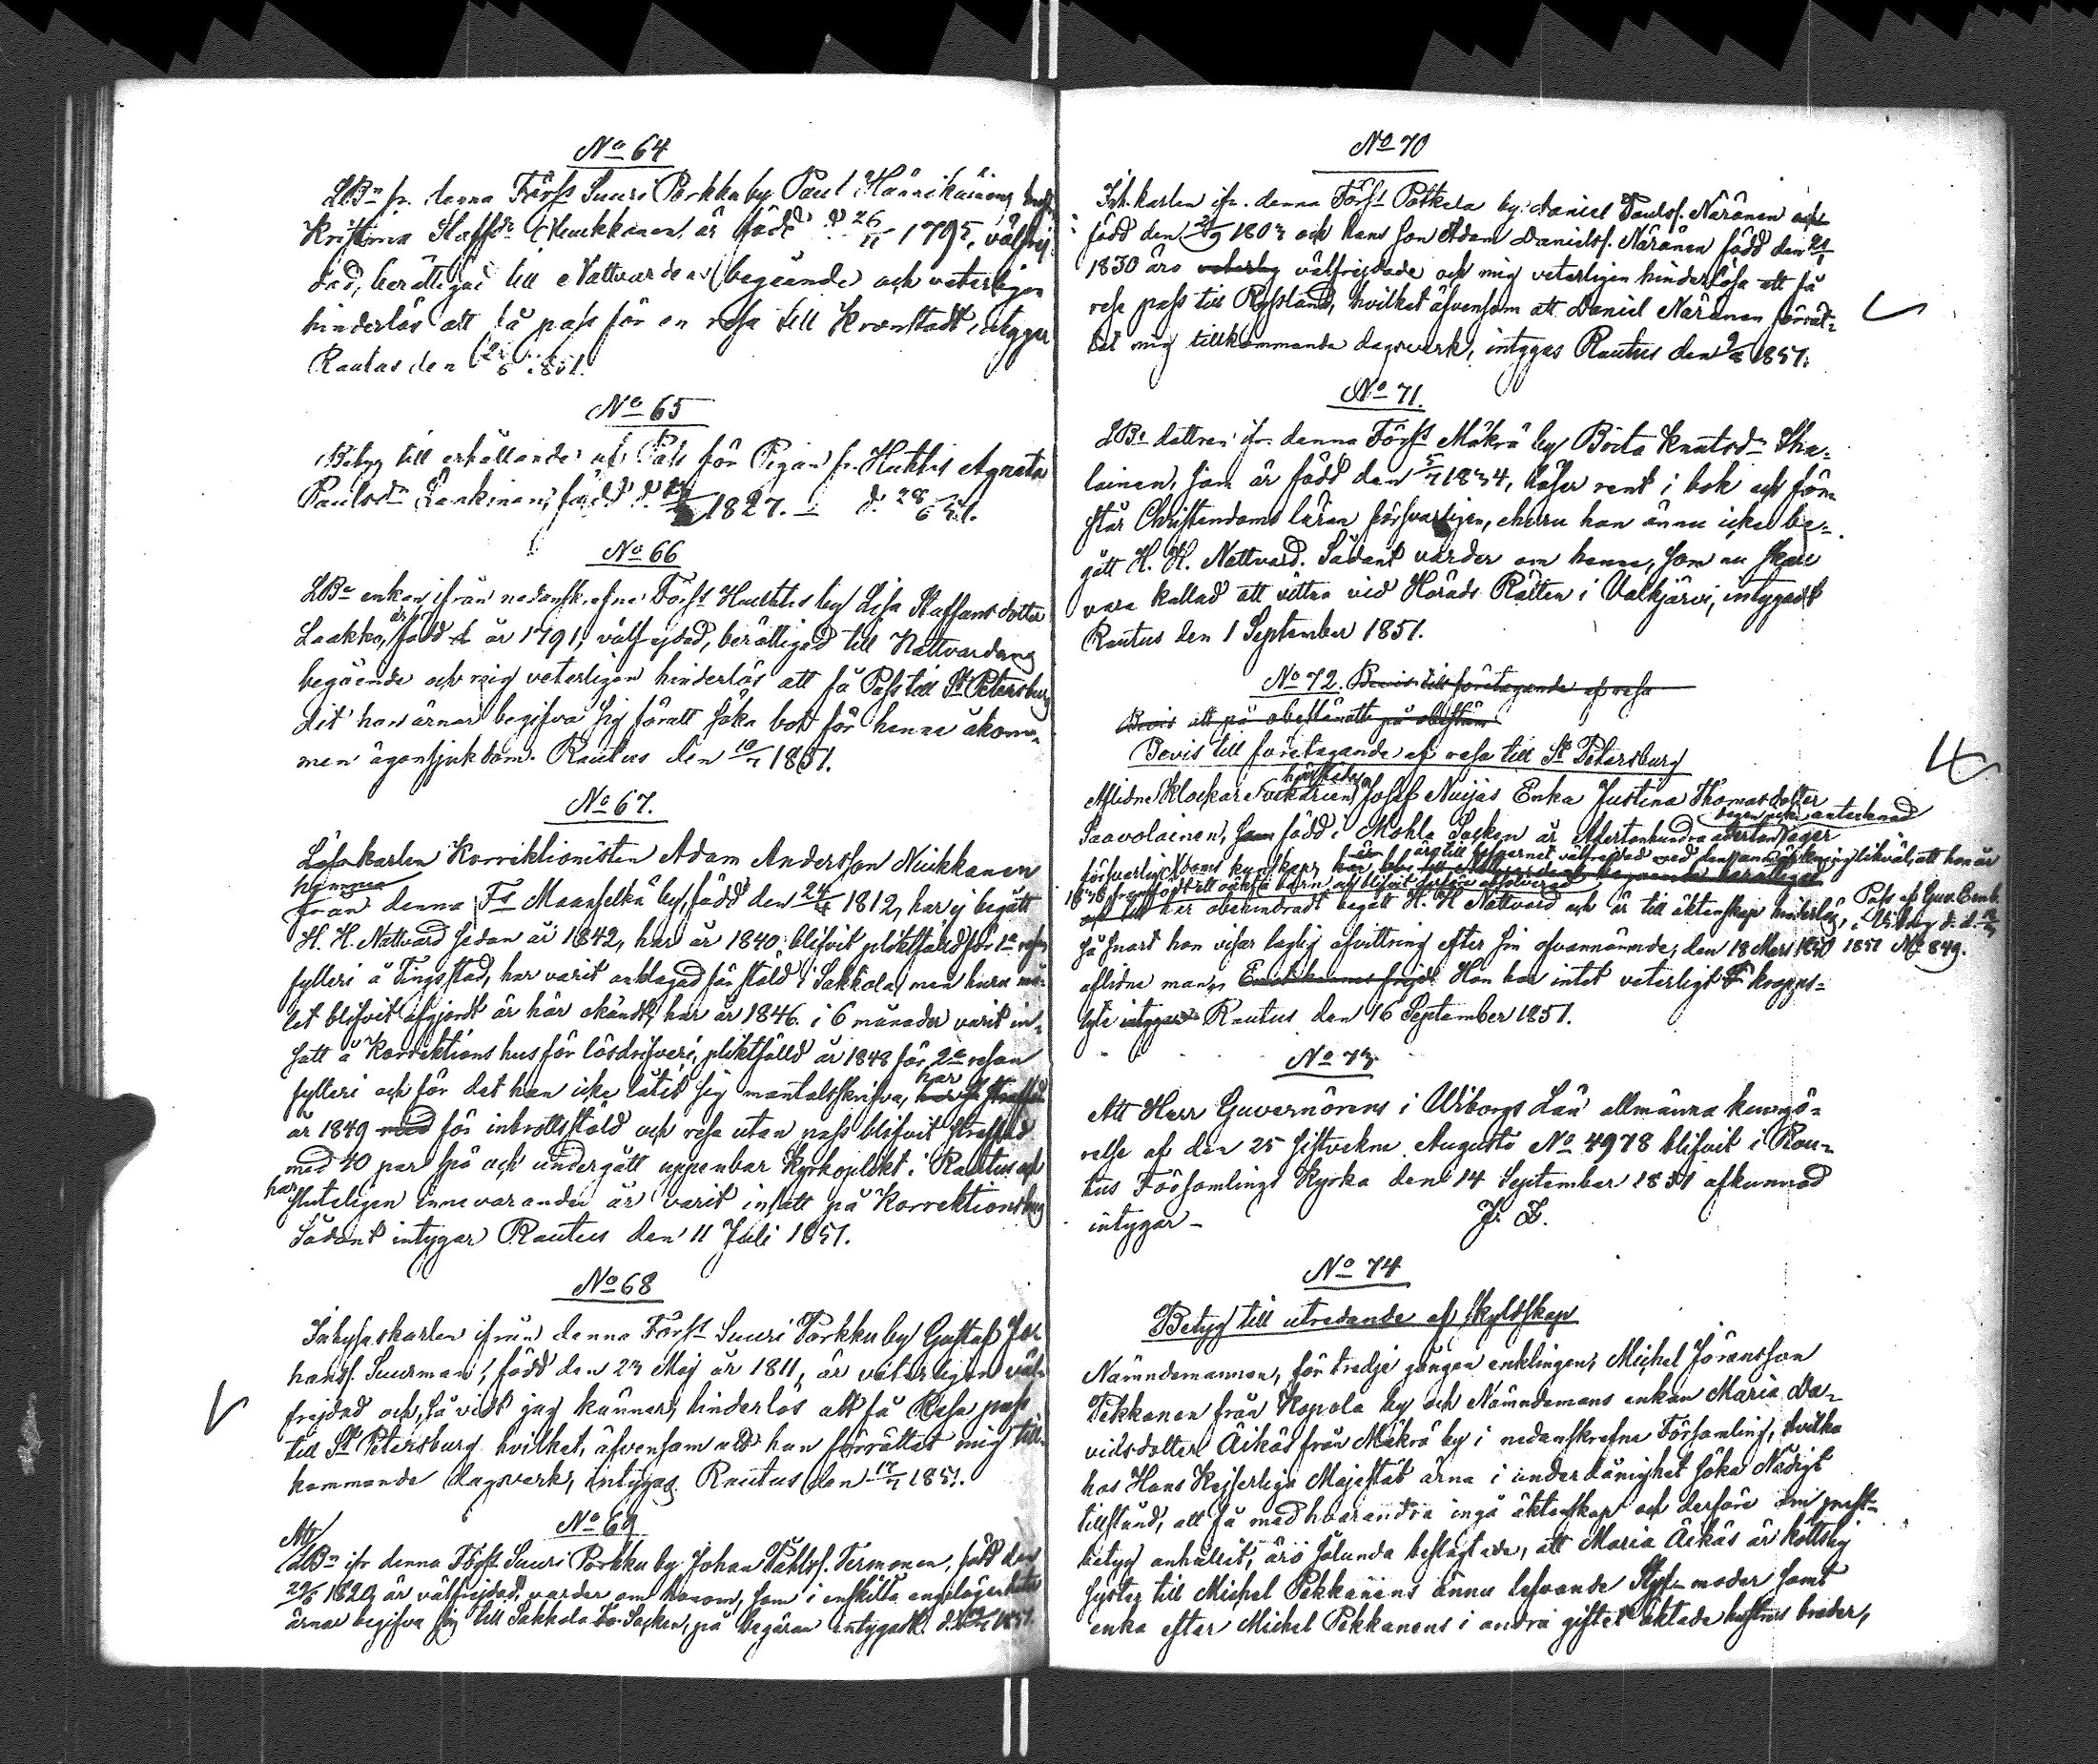 No 64
LBn fr. denna Förs:t Suuri Porkku by Paul Hännikäinens
Kristina Staffsdr Muukkonen, är född d 26/11 1795, välfrej-
dad, berättigad till Nattvardens begående och veterligen
hinderlös att få pass för en resa till Kronstadt, intygar
Rautus den
No 65
Betyg till erhållande af Pass för Pigan fr. Huhtis Agneta
Paulsdr Laakinen, född d. 1827. — d. 28/6 51.
No 66
LBe enkan ifrån nedanskrefne Förs:t Huhtis by Lisa Staffansdotter
Laakko, är född år 1791, välfrejdad, berättigad till Nattvardens
begående och mig veterligen hinderlös att få Pass till St Petersburg
dit hon ärnar begifva sig föratt söka bot för henne åkom-
men ögonsjukdom. Rautus den 10/7 1851.
No 67.
Löskarlen Korrektionisten Adam Andersson Nuikkanen
hemma
från denna Fs Maanselkä by, född den 24/ 1812, har ej begått
H. H. Nattvard sedan år 1842, har år 1840 blifvit pliktfälld för 1a resan
fylleri å Tingsstad, har varit anklagad för stöld i Sakkola, men huru må-
let blifvit afgjordt är här okändt, har år 1846 i 6 månader varit in-
satt å Korrektionshus för lösdrifveri, pliktfälld år 1848 för 2a resan
fylleri och för det han icke låtit sig mantalsskrifva, har
år 1849 med för inbrottsstöld och resa utan pass blifvit straffad
med 40 par spö och undergått uppenbar Kyrkoplikt i Rautus och
har slutligen innevarande år varit insatt på Korrektionshus
Sådant intygar Rautus den 11 Juli 1851.
No 68
Inhyseskarlen ifrån denna Förs:t Suuri Porkku by Gustaf Jo-
hansf. Suurman, född den 23 Maj år 1811, är veterligen väl-
frejdad och, så vidt jag känner, hinderlös att få Resepass
till St Petersburg hvilket, äfvensom att han förrättat mig till-
kommande dagsverk, intygas. Rautus den 17/7 1851.
No 69
Att LBn ifr denna Förs:t Suuri Porkku by Johan Påhlsf. Termonen, född den
29/6 1820, är välfrejdad, varder om honom, som i enskilta angelägenheter
ärnar begifva sig till Sakkola Socken, på begäran intygadt. d. 1851.
No 70
Inh. karlen ifr. denna Förs:t Potkela by Daniel Paulsf. Näränen
född den 2/9 1803 och hans son Adam Danielsf. Näränen född den
1830 äro veterlig välfrejdade och mig veterligen hinderlösa att få
rese pass till Ryssland, hvilket äfvensom att Daniel Näränen förrät-
tat mig tillkommande dagsverk, intygas Rautus den 1851.
No 71.
LBe dottren ifr. denna Förs:t Mäkrä by Brita Knutsdr Iha-
lainen, som är född den 5/7 1834, läser rent i bok och för-
står Christendoms läran försvarligen, ehuru hon ännu icke be-
gått H. H. Nattvard. Sådant varder om henne, som nu skall
vara kallad att vittna vid Härads Rätten i Valkjärvi, intygadt
Rautus den 1 September 1851.
No 72. Bevis till företagande af resa
Bevis att på obestämdt på obestäm
Bevis till företagande af resa till St Petersburg
Aflidne Klockare vikarien Josef Nuijas Enka Justina Thomasdotter
Saavolainen, som född i Mohla Socken år Adertonhundra aderton, äger
försvarlig Christendoms kunskap, är till lefvernet välfrejdad med den anmärkning likväl, att hon år
18 framfödt ett oäkta barn och blifvit derföre absolverad
har obehindradt begått H. H Nattvard och är till äktenskap hinderlös,
så snart hon visar laglig afvittring efter sin ofvannämnde, den 18 Mars 1850
aflidne man. Hon har intet veterligt kropps-
lyte Rautus den 16 September 1851.
Pass af Guv. Emb.
i Wiborg d. d.
1851 No 849.
No 73
Att Herr Guvernörens i Wiborgs Län allmänna kungö-
relse af den 25 sistvekne Augusti No 4978 blifvit i Rau-
tus Församlings Kyrka den 14 September 1851 afkunnad
intygar — J. L.
No 74
Betyg till utredande af skyldskap
Nämndemannen, för tredje gången enklingen, Michel Göransson
Pekkanen från Kopola by och Nämndemans enkan Maria Da-
vidsdotter Äikäs från Mäkrä by i nedanskrefne Församling, hvilka
hos Hans Kejserliga Majestät ärna i underdånighet söka Nådigt
tillstånd, att få med hvarandra ingå äktenskap och derföre om prest-
betyg anhållit, äro sålunda beslägtade, att Maria Äikäs är köttslig
syster till Michel Pekkanens ännu lefvande Styfmoder samt
enka efter Michel Pekkanens i andra giftet äktade hustrus broder,